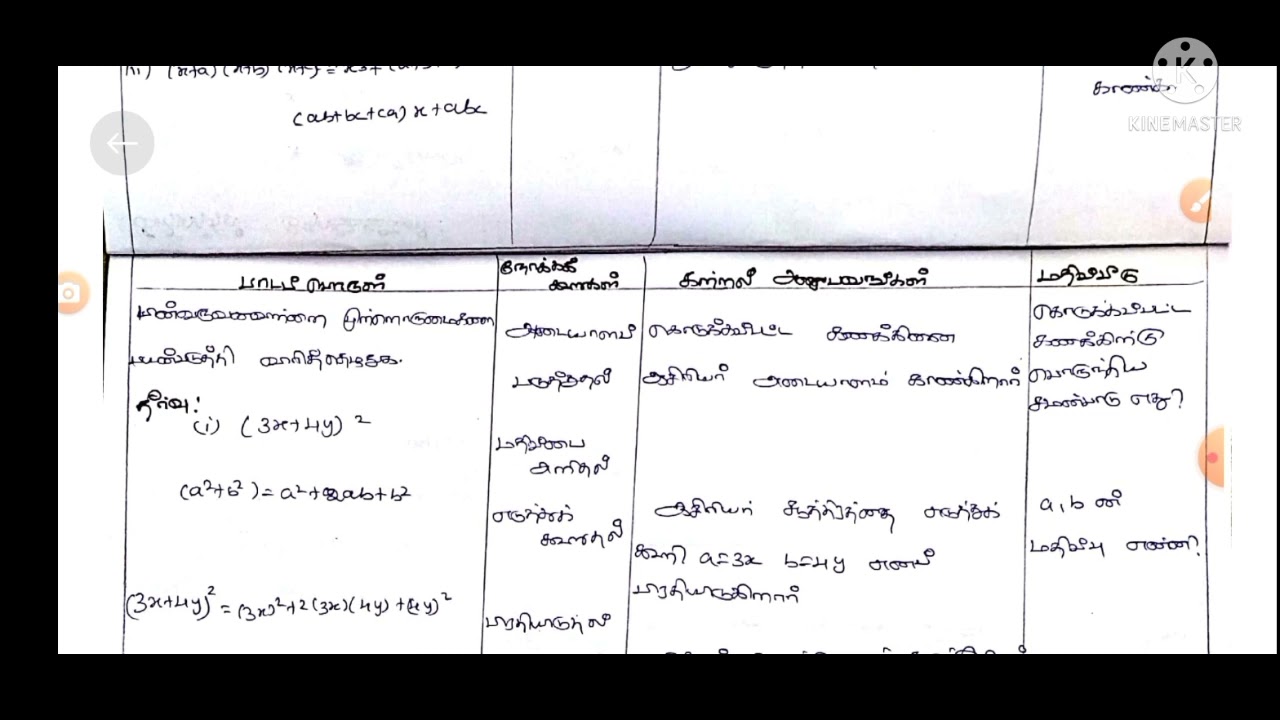 (x+a)(x+b)
(ab+bc+ca)x+abc
காண்க
KINEMASTER
பாடப் பொருள்
நோக்கக் கூறுகள்
கற்றல் அனுபவங்கள்
மதிப்பீடு
பின்வருவனவற்றை முற்றொருமைகளை
பயன்படுத்தி விரித்தெழுதுக.
தீர்வு!
(i) (3x+4y) 2
(a²+b²) = a²+2ab+b²
(3x+4y)² = (3x)²+2(3x)(4y)+(4y)²
அடையாளம்
மதிப்பை
அறிதல்
எடுத்துக்
கூறுதல்
பிரதியிடுதல்
கொடுக்கப்பட்ட கணக்கினை
ஆசிரியர் அடையாளம் காண்கிறார்
ஆசிரியர் சூத்திரத்தை எடுத்துக்
கூறி a=3x b=4y எனப்
பிரதியிடுகிறார்
கொடுக்கப்பட்ட
கணக்கிற்கு
பொருந்திய
சமன்பாடு எது?
a, b ன்
மதிப்பு என்ன?